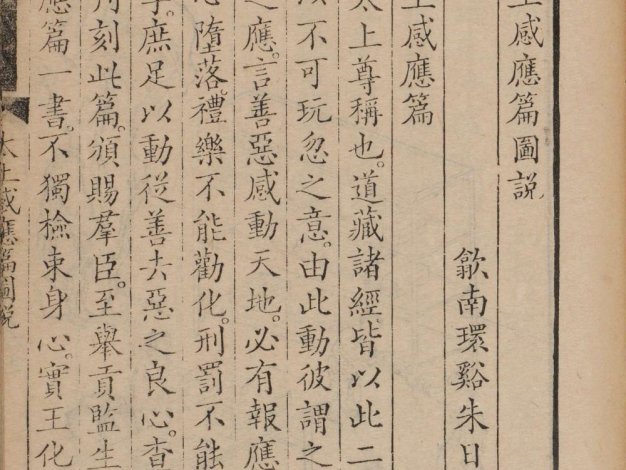 上感應篇圖説
歙南環谿朱日
上感應篇
太上尊稱也。道藏諸經皆以此二
以不可玩忽之意。由此動彼謂之
之應。言善惡感動天地。必有報應
心墮落。禮樂不能勸化。刑罰不能
字。庶足以動從善去惡之良心。查
刻此篇。頒賜羣臣。至舉貢監生
應篇一書。不獨檢束身心。實王化
太上感應篇圖説